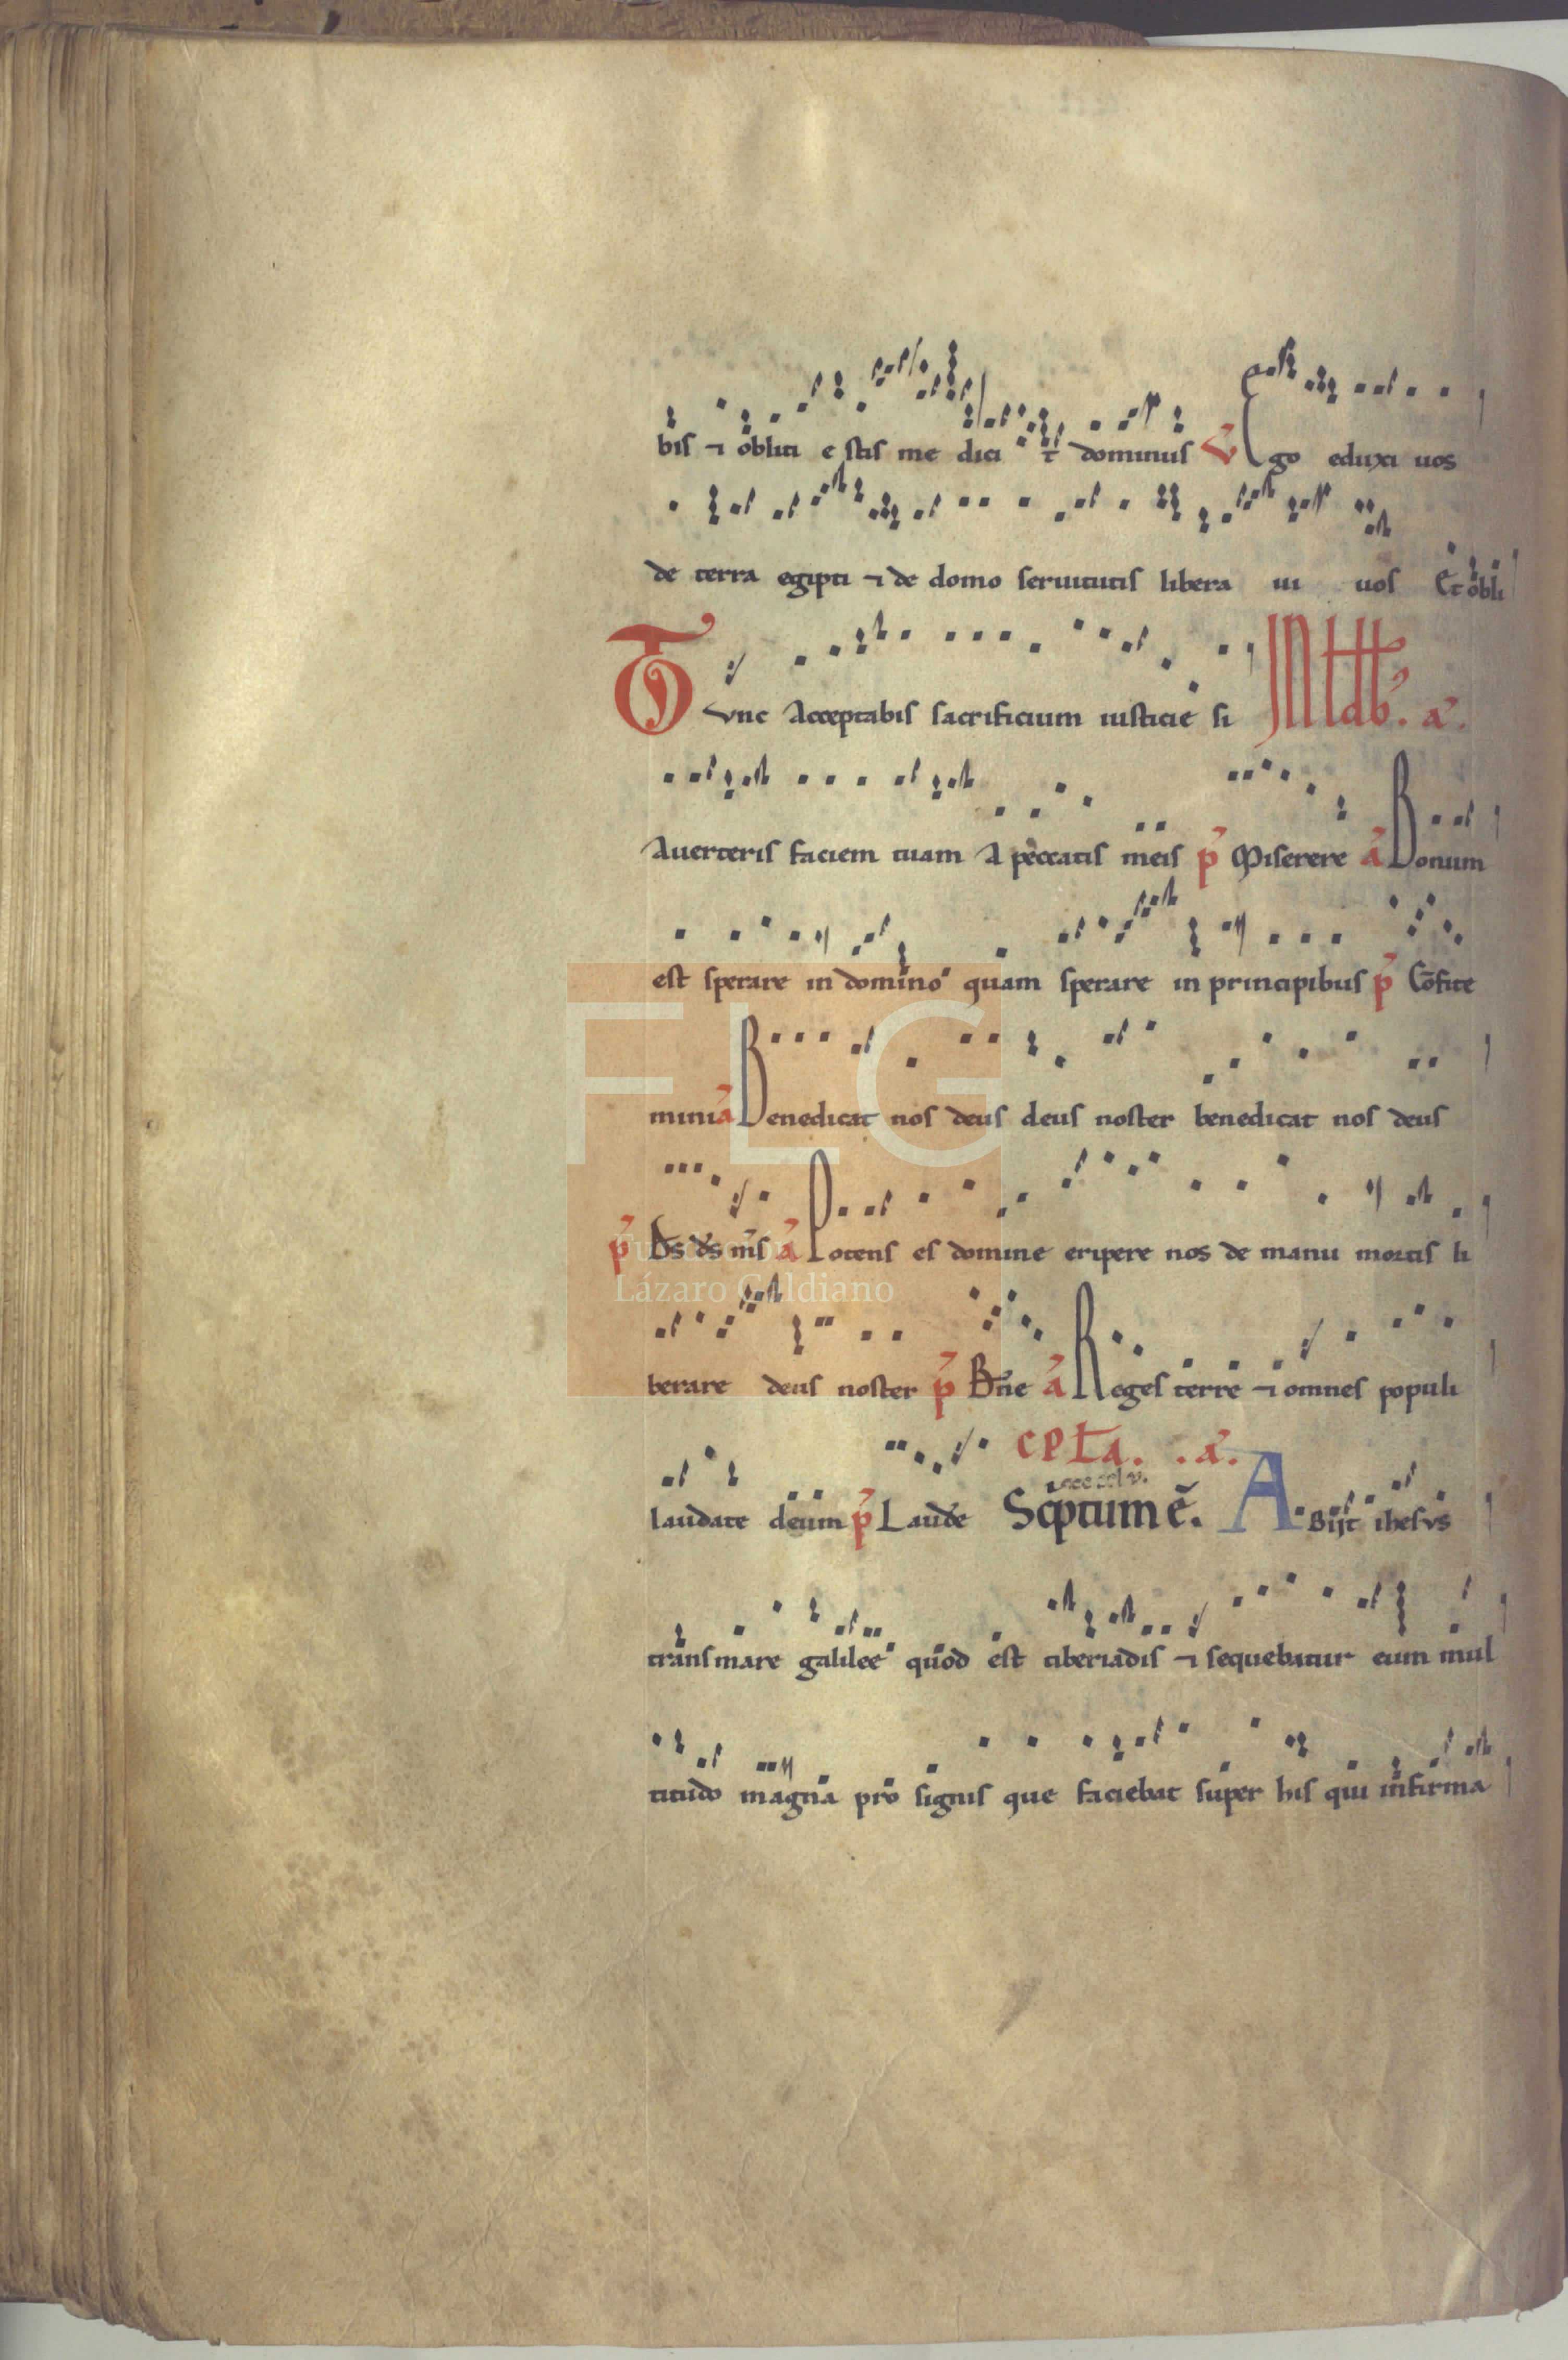 bis ⁊ obliti estis me dicit dominus V Ego eduxi uos
de terra egipti ⁊ de domo seruitutis libera ui uos Et obli
Tunc Acceptabis sacrificium iusticie si IN Mat lab'. a͂.
Auerteris faciem tuam A peccatis meis p͂ Miserere a͂ Bonum
est sperare in domino quam sperare in principibus p͂ Cōfite
mini a͂ Benedicat nos deus deus noster benedicat nos deus
p͂ D͂s d͂s m͂s a͂ Potens es domine eripere nos de manu mortis li
berare deus noster p͂ B͂ne a͂ Reges terre ⁊ omnes populi
laudate deum p͂ Laud͂e Sc̄ptum ē. cpl̄a. .a͂. ABijt ihesvs
trans mare galilee quod est tiberiadis ⁊ sequebatur eum mul
titudo magna pro signis que faciebat super his qui infirma
FLG
Fundación
Lázaro Galdiano